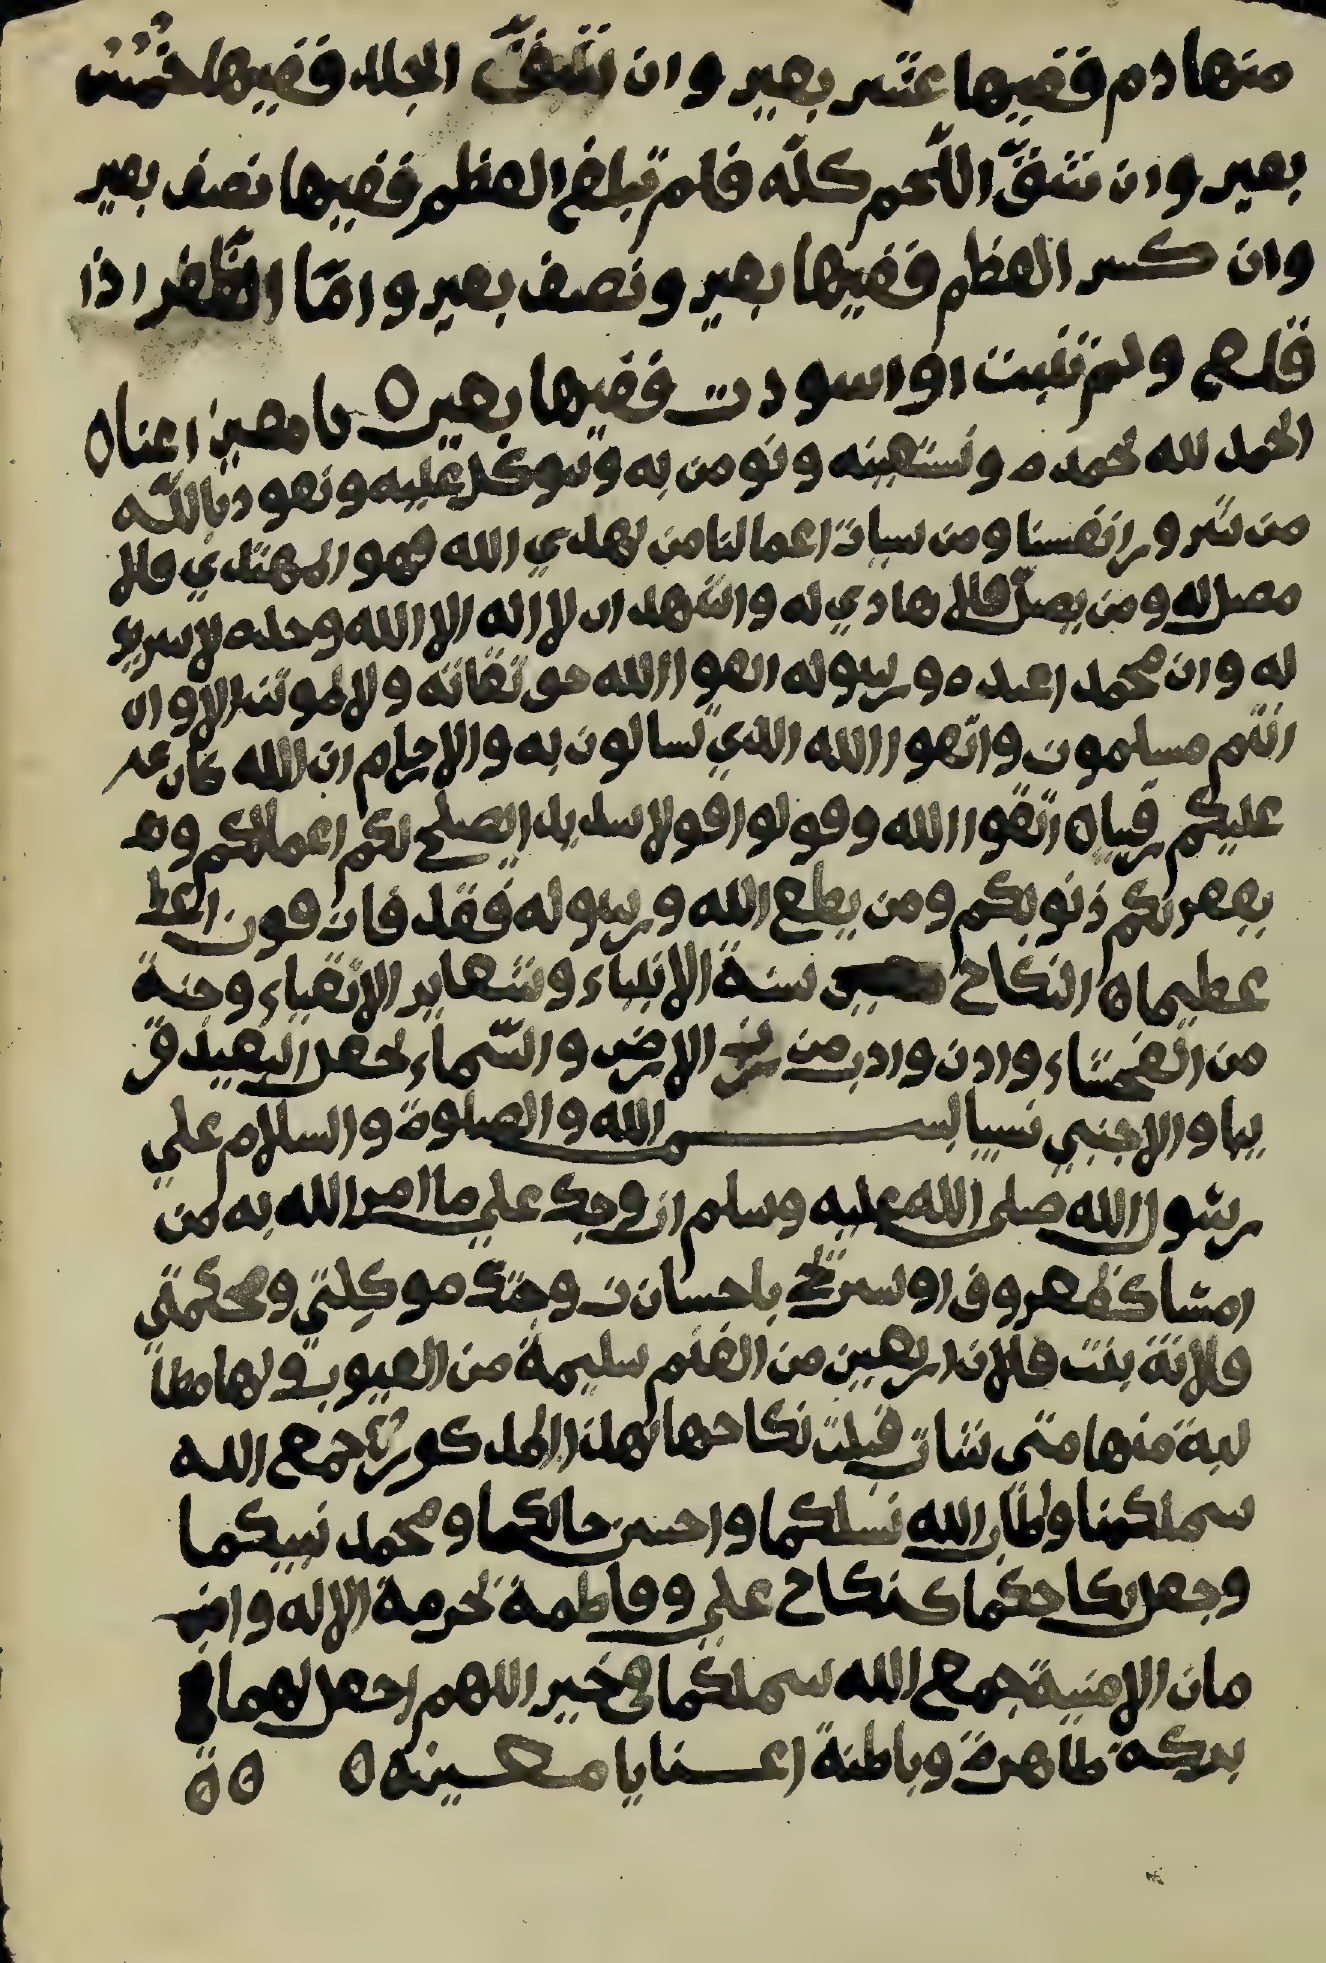 منها دم ففيها عشر بعير وان تشقّ الجلد ففيها خُمُسُ
بعير وان تشقّ اللّحم كلّه فلم تبلغ العظم ففيها نصف بعير
وان كسر العظم ففيها بعير ونصف بعير وامّا الظّفر اذا
قلع ولم تنبت او اسودت ففيها بعير ○ يا معين اعنا ○
الحمد لله نحمده ونستعينه ونومن به ونتوكل عليه ونعوذ بالله
من شرور انفسنا ومن سيات اعمالنا من يهدي الله فهو المهتدي فلا
مضل له ومن يضلّ فلا هادي له واشهد ان لا اله الا الله وحده لا شريك
له وان محمد اعبده ورسوله اتقوا الله حق تقاته ولا تموتن الا وان
انتم مسلمون واتّقوا الله الذي تسالون به والارحام ان الله كان عد
عليكم رقيبا ○ اتّقوا الله وقولوا قولا سديدا يصلح لكم اعمالكم وىع
يغفر لكم ذنوبكم ومن يطع الله ورسوله فقد فاز فوزا عظ
عظيما ○ النكاح سنة الانبياء وشعاير الاتقياء وجنة
من الفحشاء واذن وادب من رب الارض والسّماء لجعل البعيد قر
يبا والاجنبي نسيبا بسم الله والصلوة والسلام علي
رسول الله صلى الله عليه وسلم ازوجك علي ما امر الله به من
امساك بمعروف او تسريح باحسان زوجتك موكلتي ومحكمتي
فلانة بنت فلان اربعين من الغنم سليمة من العيوب ولها مطا
لبة منها متى شات قبلت نكاحها بهذا المذكور جمع الله
سملكمنا وطاب الله نسلكما واحسن حالكما ومحمد نبيكما
وجعل نكاحكما كنكاح علي وفاطمة لحرمة الاله وانىـ
مان الامنية جمع الله سملكما في خير اللهم اجعل لهما في
بركة طاهرة وباطنة اعنا يا معينه ○ ○ ة